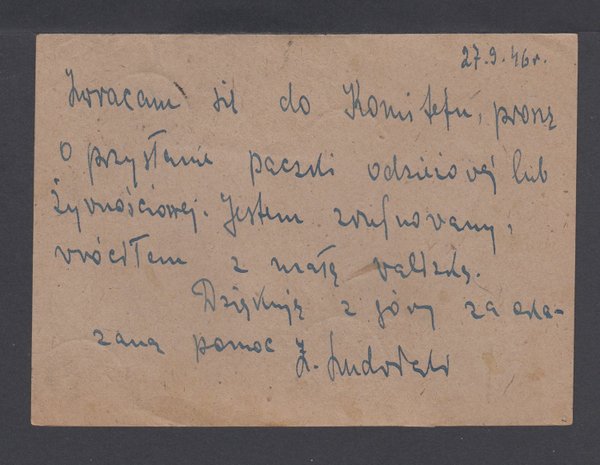 27.9.46r.
Zwracam się do Komitetu, proszę
o przysłanie paczki odzieżowej lub
żywnościowej. Jestem zrujnowany,
wróciłem z małą walizką.
Dziękuję z góry za oka-
zaną pomoc Z.